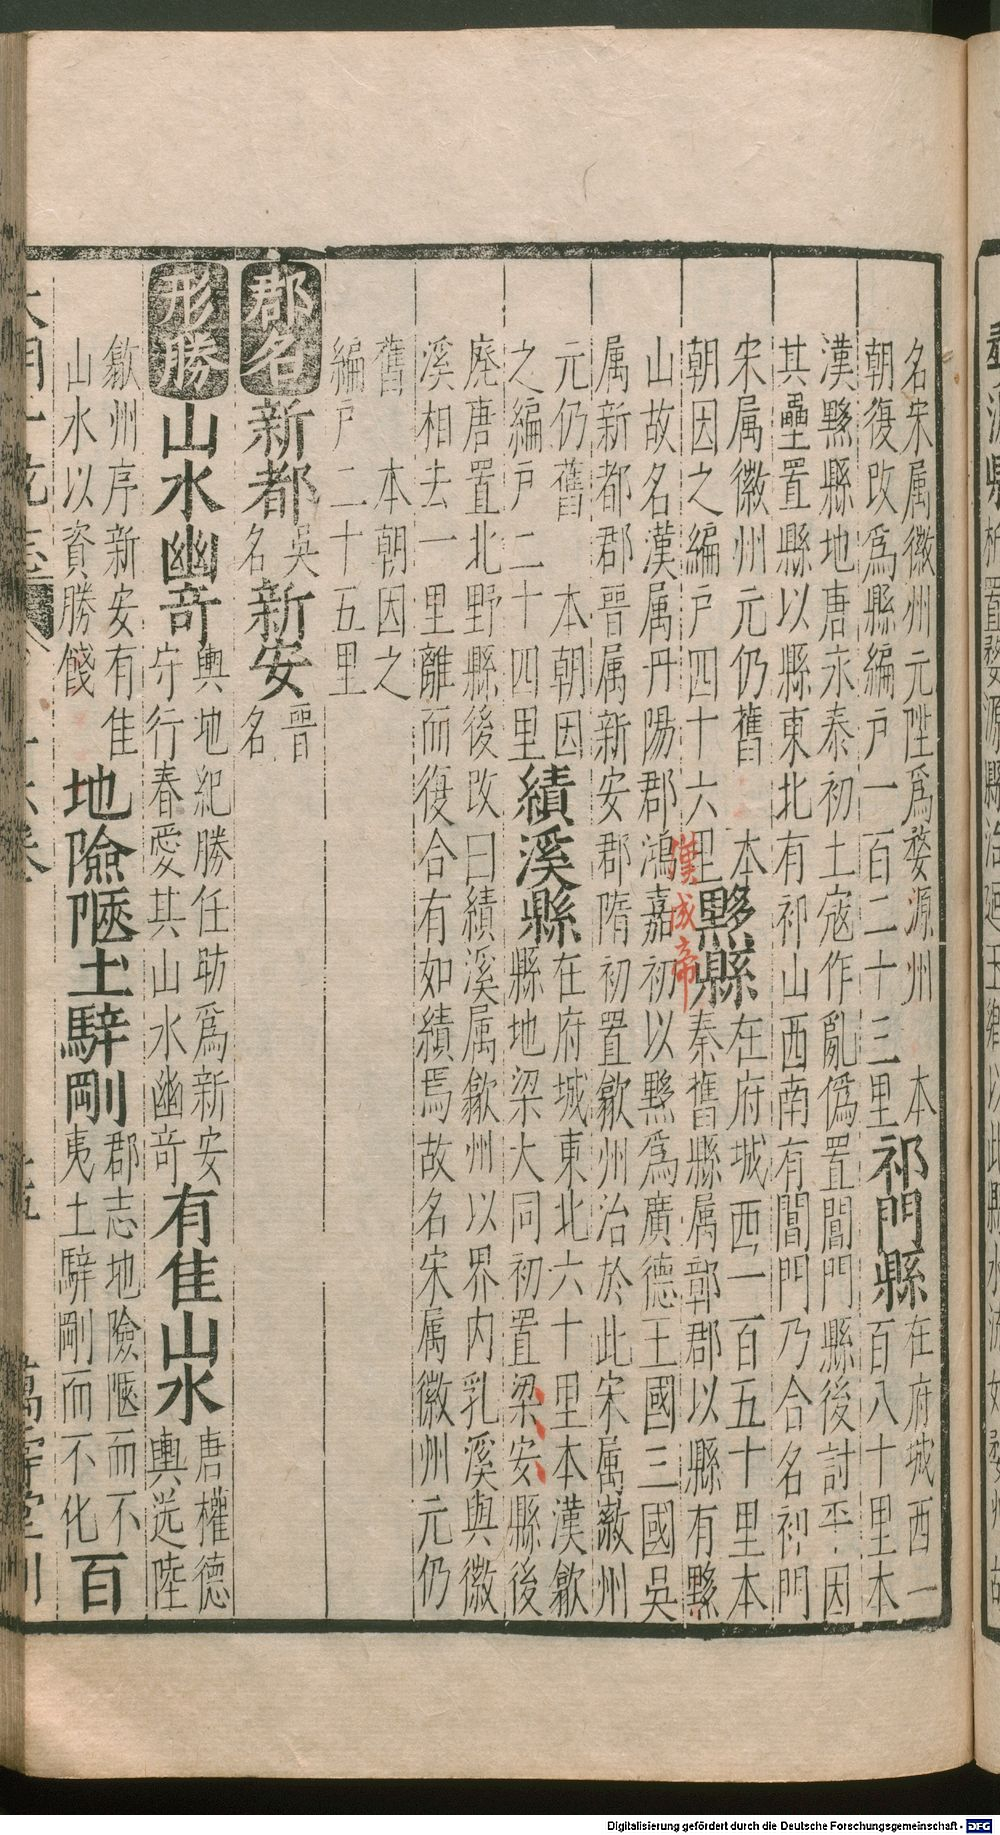 名宋属徽州元陞爲婺源州 本
朝復改爲縣編戶一百二十三里
祁門縣
在府城西一
百八十里本
漢黟縣地唐永泰初土寇作亂僞置閶門縣後討平因
其壘置縣以縣東北有祁山西南有閶門乃合名祁門
宋属徽州元仍舊 本
朝因之編戶四十六里
黟縣
在府城西一百五十里本
秦舊縣属鄣郡以縣有黟
漢成帝
山故名漢属丹陽郡鴻嘉初以黟爲廣德王國三國吳
属新都郡晉属新安郡隋初置歙州治於此宋属徽州
元仍舊 本朝因
之編戶二十四里
績溪縣
在府城東北六十里本漢歙
縣地梁大同初置梁安縣後
廃唐置北野縣後改曰績溪属歙州以界内乳溪與徽
溪相去一里離而復合有如績焉故名宋属徽州元仍
舊 本朝因之
編戶二十五里
郡名
新都
吳
名
新安
晉
名
形勝
山水幽奇
輿地紀勝任昉爲新安
守行春愛其山水幽奇
有佳山水
唐權德
輿送陸
歙州序新安有佳
山水以資勝餞
地險陿土騂剛
郡志地險陿而不
夷土騂剛而不化
百
Digitalisierung gefördert durch die Deutsche Forschungsgemeinschaft - DFG